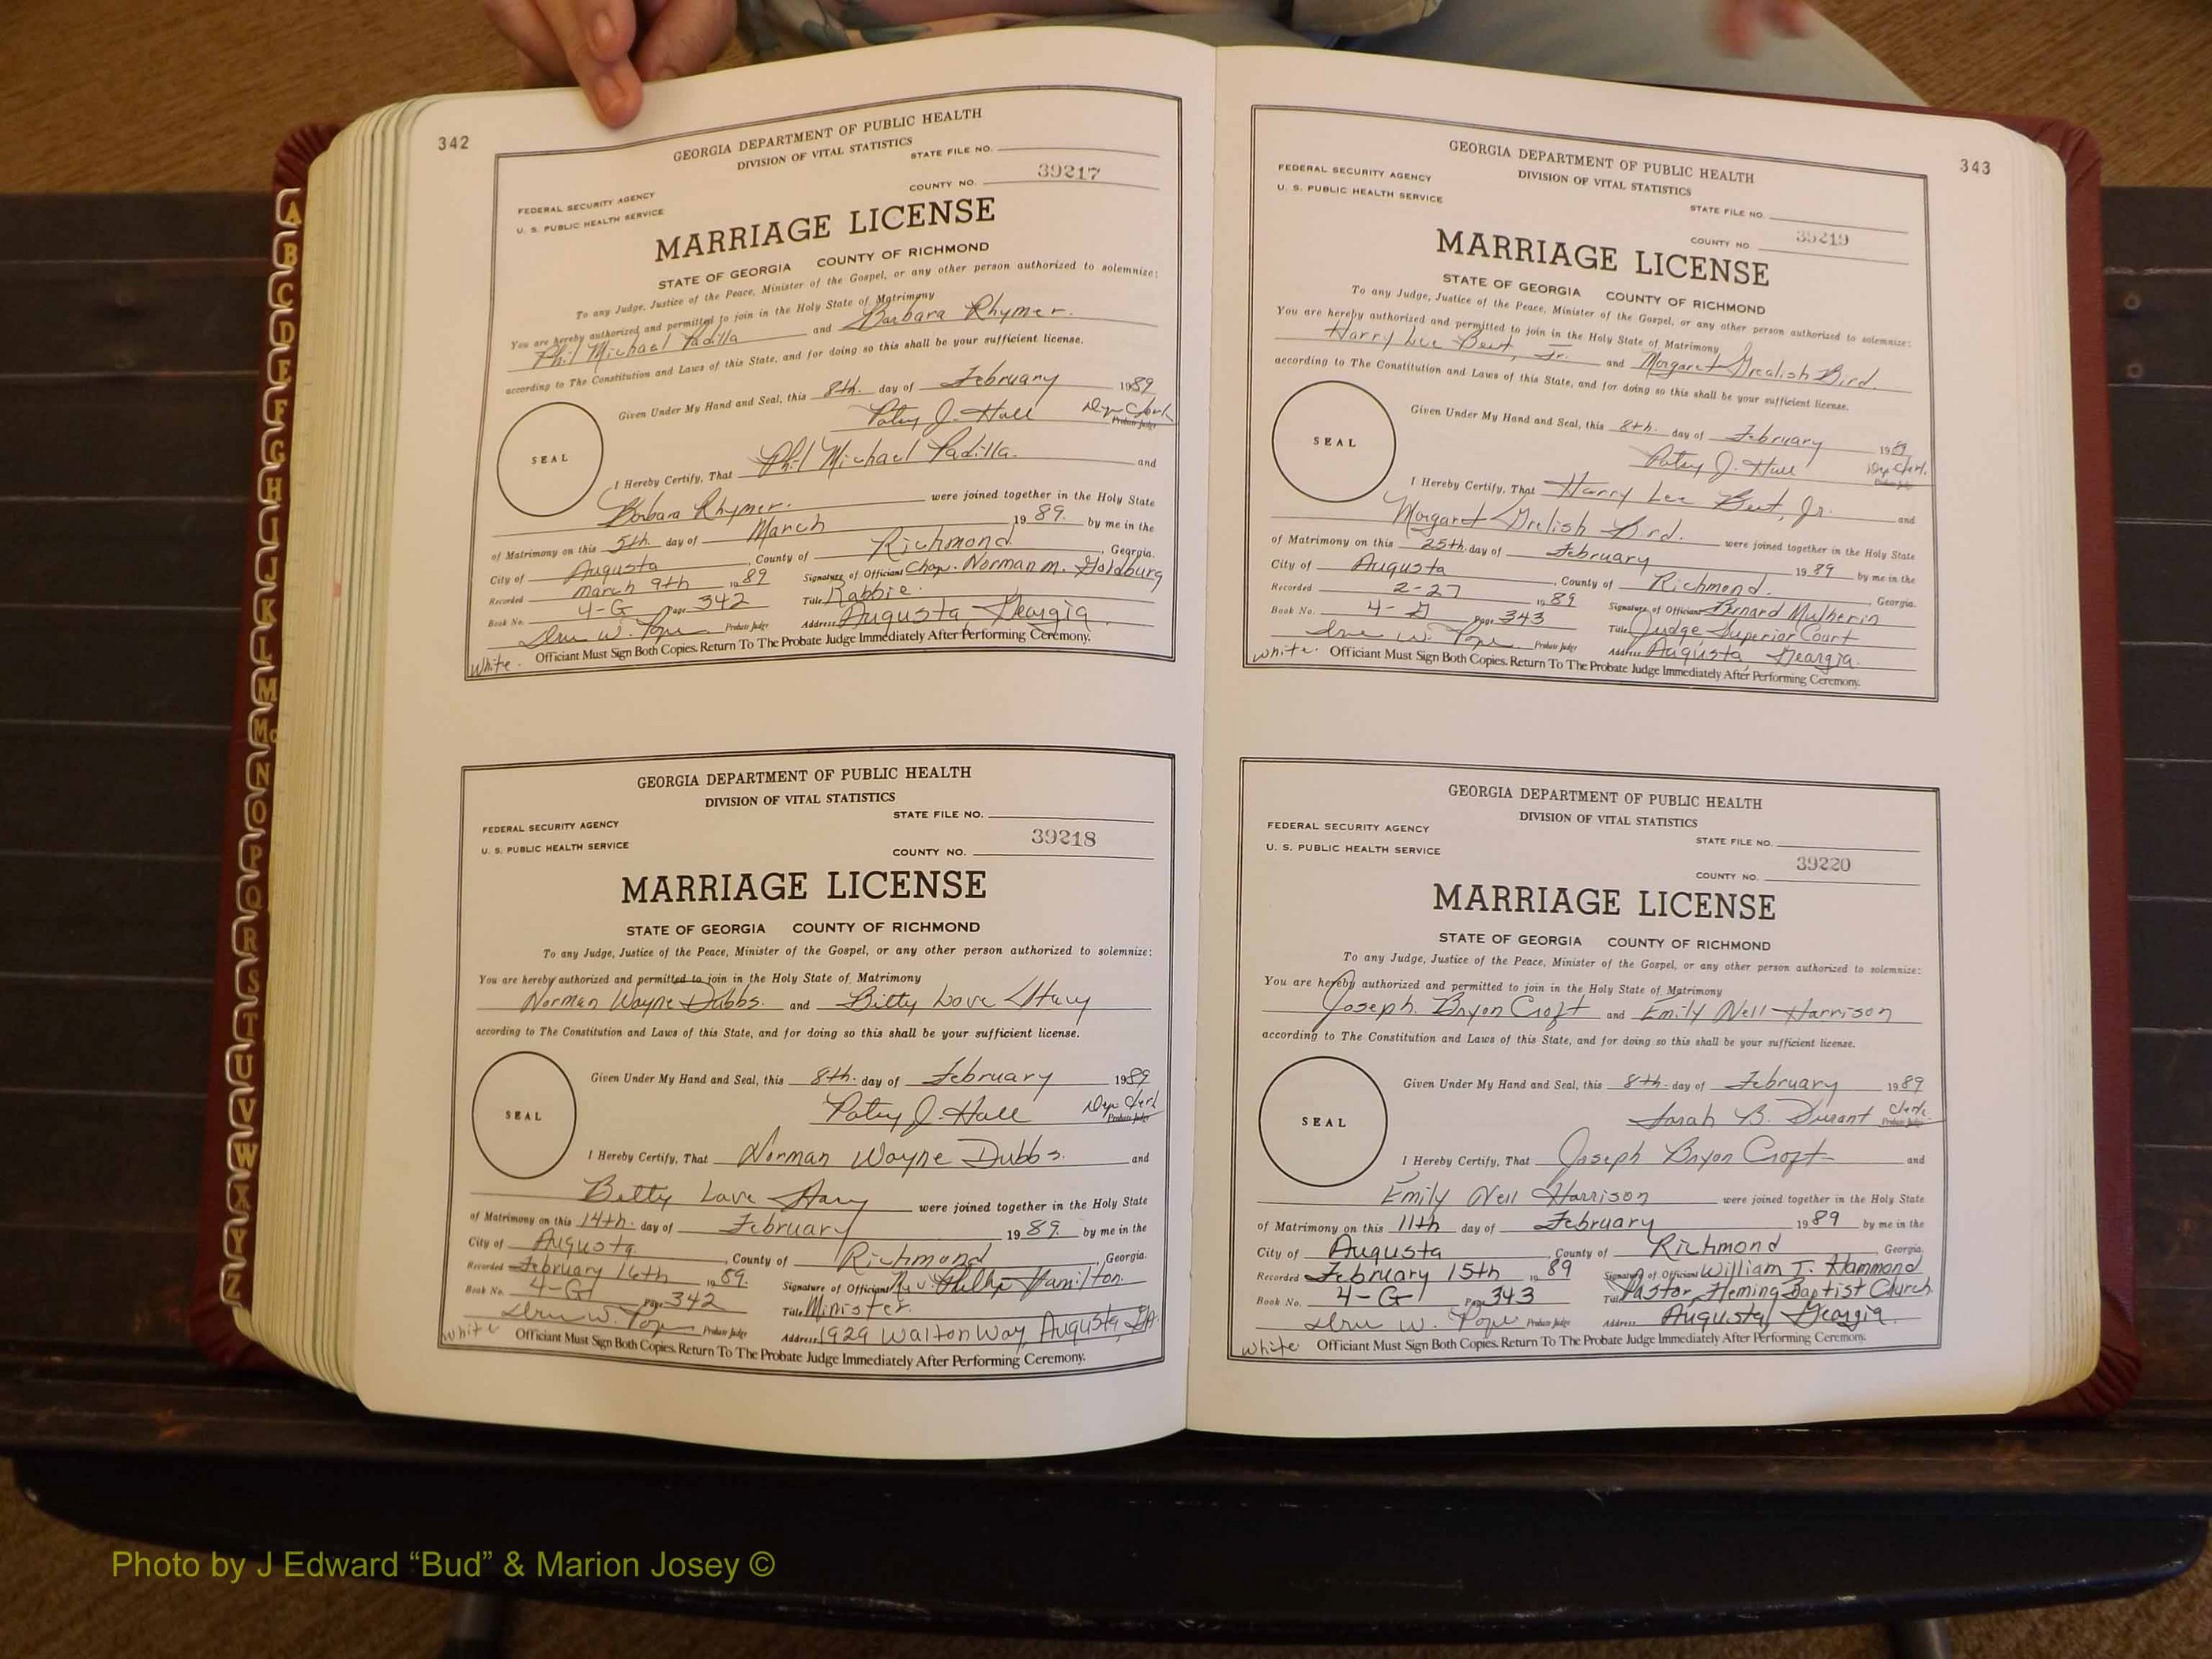 342
GEORGIA DEPARTMENT OF PUBLIC HEALTH
DIVISION OF VITAL STATISTICS
STATE FILE NO.
FEDERAL SECURITY AGENCY
U. S. PUBLIC HEALTH SERVICE
COUNTY NO. 39217
MARRIAGE LICENSE
STATE OF GEORGIA COUNTY OF RICHMOND
To any Judge, Justice of the Peace, Minister of the Gospel, or any other person authorized to solemnize:
You are hereby authorized and permitted to join in the Holy State of Matrimony
Phil Michael Padilla and Barbara Rhymer.
according to The Constitution and Laws of this State, and for doing so this shall be your sufficient license.
Given Under My Hand and Seal, this 8th. day of February 1989
Patsy J. Hall Dep Clerk
Probate Judge
SEAL
I Hereby Certify, That Phil Michael Padilla. and
Barbara Rhymer. were joined together in the Holy State
of Matrimony on this 5th. day of March 1989. by me in the
City of Augusta, County of Richmond, Georgia.
Recorded March 9th 1989 Signature of Officiant Chap. Norman M. Goldburg
Book No. 4-G Page 342 Title Rabbie.
Probate Judge Address Augusta, Georgia
White. Officiant Must Sign Both Copies. Return To The Probate Judge Immediately After Performing Ceremony.
GEORGIA DEPARTMENT OF PUBLIC HEALTH
DIVISION OF VITAL STATISTICS
STATE FILE NO.
FEDERAL SECURITY AGENCY
U. S. PUBLIC HEALTH SERVICE
COUNTY NO. 39218
MARRIAGE LICENSE
STATE OF GEORGIA COUNTY OF RICHMOND
To any Judge, Justice of the Peace, Minister of the Gospel, or any other person authorized to solemnize:
You are hereby authorized and permitted to join in the Holy State of Matrimony
Norman Wayne Dubbs. and Betty Love
according to The Constitution and Laws of this State, and for doing so this shall be your sufficient license.
Given Under My Hand and Seal, this 8th. day of February 1989
Patsy J. Hall Dep Clerk
Probate Judge
SEAL
I Hereby Certify, That Norman Wayne Dubbs. and
Betty Love were joined together in the Holy State
of Matrimony on this 14th. day of February 1989. by me in the
City of Augusta, County of Richmond, Georgia.
Recorded February 16th 1989. Signature of Officiant Rev. Hamilton.
Book No. 4-G Page 342 Title Minister.
Probate Judge Address 1929 Walton Way Augusta, GA.
White Officiant Must Sign Both Copies. Return To The Probate Judge Immediately After Performing Ceremony.
343
GEORGIA DEPARTMENT OF PUBLIC HEALTH
DIVISION OF VITAL STATISTICS
FEDERAL SECURITY AGENCY
U. S. PUBLIC HEALTH SERVICE
STATE FILE NO.
COUNTY NO 39219
MARRIAGE LICENSE
STATE OF GEORGIA COUNTY OF RICHMOND
To any Judge, Justice of the Peace, Minister of the Gospel, or any other person authorized to solemnize:
You are hereby authorized and permitted to join in the Holy State of Matrimony
Harry Lee Bert, Jr. and Margaret Grealish Bird.
according to The Constitution and Laws of this State, and for doing so this shall be your sufficient license.
Given Under My Hand and Seal, this 8th. day of February 1989
Patsy J. Hall Dep Clerk.
Probate Judge
SEAL
I Hereby Certify, That Harry Lee Bert, Jr. and
Margaret Grelish Bird. were joined together in the Holy State
of Matrimony on this 25th. day of February 1989 by me in the
City of Augusta, County of Richmond., Georgia.
Recorded 2-27 1989 Signature of Officiant Bernard Mulherin
Book No. 4-G Page 343 Title Judge Superior Court
Probate Judge Address Augusta, Georgia.
White. Officiant Must Sign Both Copies. Return To The Probate Judge Immediately After Performing Ceremony.
GEORGIA DEPARTMENT OF PUBLIC HEALTH
DIVISION OF VITAL STATISTICS
FEDERAL SECURITY AGENCY
U. S. PUBLIC HEALTH SERVICE
STATE FILE NO.
COUNTY NO. 39220
MARRIAGE LICENSE
STATE OF GEORGIA COUNTY OF RICHMOND
To any Judge, Justice of the Peace, Minister of the Gospel, or any other person authorized to solemnize:
You are hereby authorized and permitted to join in the Holy State of Matrimony
Joseph Bryon Croft and Emily Nell Harrison
according to The Constitution and Laws of this State, and for doing so this shall be your sufficient license.
Given Under My Hand and Seal, this 8th. day of February 1989
Sarah B. Durant Clerk.
Probate Judge
SEAL
I Hereby Certify, That Joseph Bryon Croft and
Emily Nell Harrison were joined together in the Holy State
of Matrimony on this 11th day of February 1989 by me in the
City of Augusta, County of Richmond Georgia
Recorded February 15th 1989 Signature of Officiant William T. Hammond
Book No. 4-G Page 343 Title Pastor Fleming Baptist Church
Probate Judge Address Augusta, Georgia.
White Officiant Must Sign Both Copies. Return To The Probate Judge Immediately After Performing Ceremony.
A
B
C
D
E
F
G
H
I
J
K
L
M
Mc
N
O
P
Q
R
S
T
U
V
W
X
Y
Z
Photo by J Edward “Bud” & Marion Josey ©